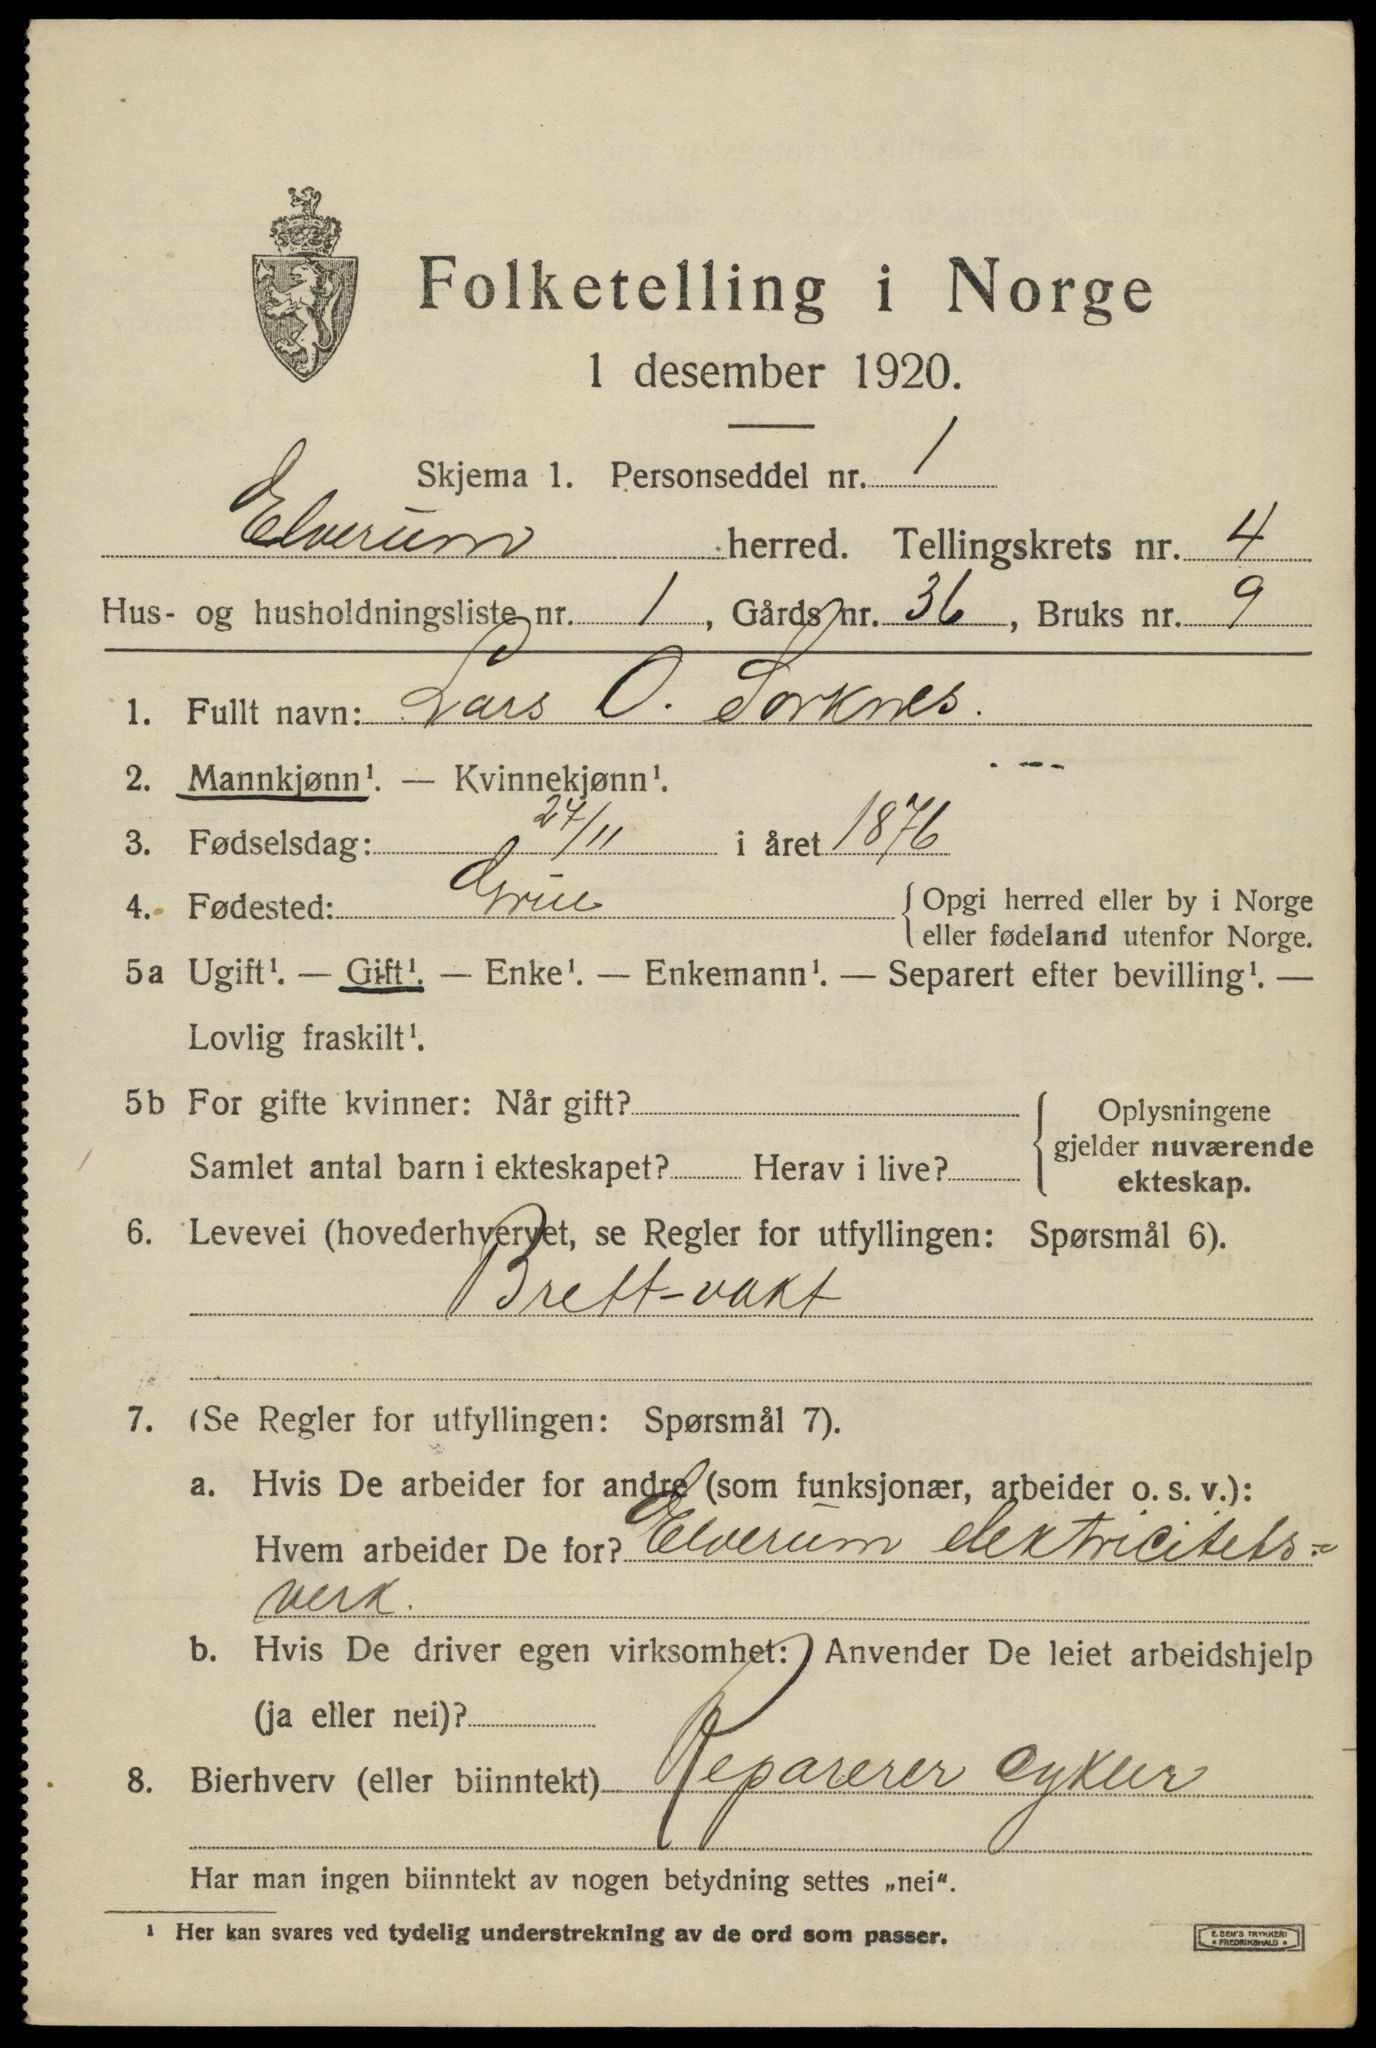 Folketelling i Norge
1 desember 1920.
Skjema 1. Personseddel nr. 1
Elverum herred. Tellingskrets nr. 4
Hus- og husholdningsliste nr. 1, Gårds nr. 36, Bruks nr. 9
1. Fullt navn: Lars O. Sorknes.
2. Mannkjønn¹. — Kvinnekjønn¹.
3. Fødselsdag: 24/11 i året 1876
4. Fødested: Grue { Opgi herred eller by i Norge
eller fødeland utenfor Norge.
5a Ugift¹. — Gift¹. — Enke¹. — Enkemann¹. — Separert efter bevilling¹. —
Lovlig fraskilt¹.
5b For gifte kvinner: Når gift? { Oplysningene
gjelder nuværende
Samlet antal barn i ekteskapet? Herav i live?
ekteskap.
6. Levevei (hovederhvervet, se Regler for utfyllingen: Spørsmål 6).
Brett-vakt
7. (Se Regler for utfyllingen: Spørsmål 7).
a. Hvis De arbeider for andre (som funksjonær, arbeider o. s. v.):
Hvem arbeider De for? Elverum elektricitets=
verk.
b. Hvis De driver egen virksomhet: Anvender De leiet arbeidshjelp
(ja eller nei)?
8. Bierhverv (eller biinntekt) Reparerer cykler
Har man ingen biinntekt av nogen betydning settes „nei“.
¹ Her kan svares ved tydelig understrekning av de ord som passer.
E. SEM'S TRYKKERI
* FREDRIKSHALD *